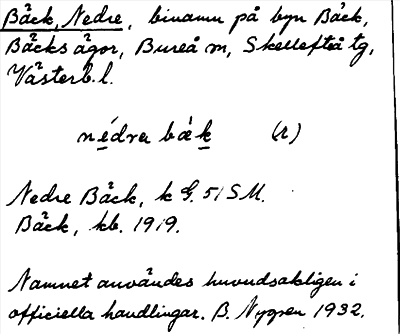 Bäck, Nedre, binamn på byn Bäck,
Bäcks ägor, Bureå sn, Skellefteå tg,
Västerb. l.
nédra bäk (r)
Nedre Bäck, k G. 51 SM.
Bäck, kb. 1919.
Namnet användes huvudsakligen i
officiella handlingar. B. Nygren 1932.